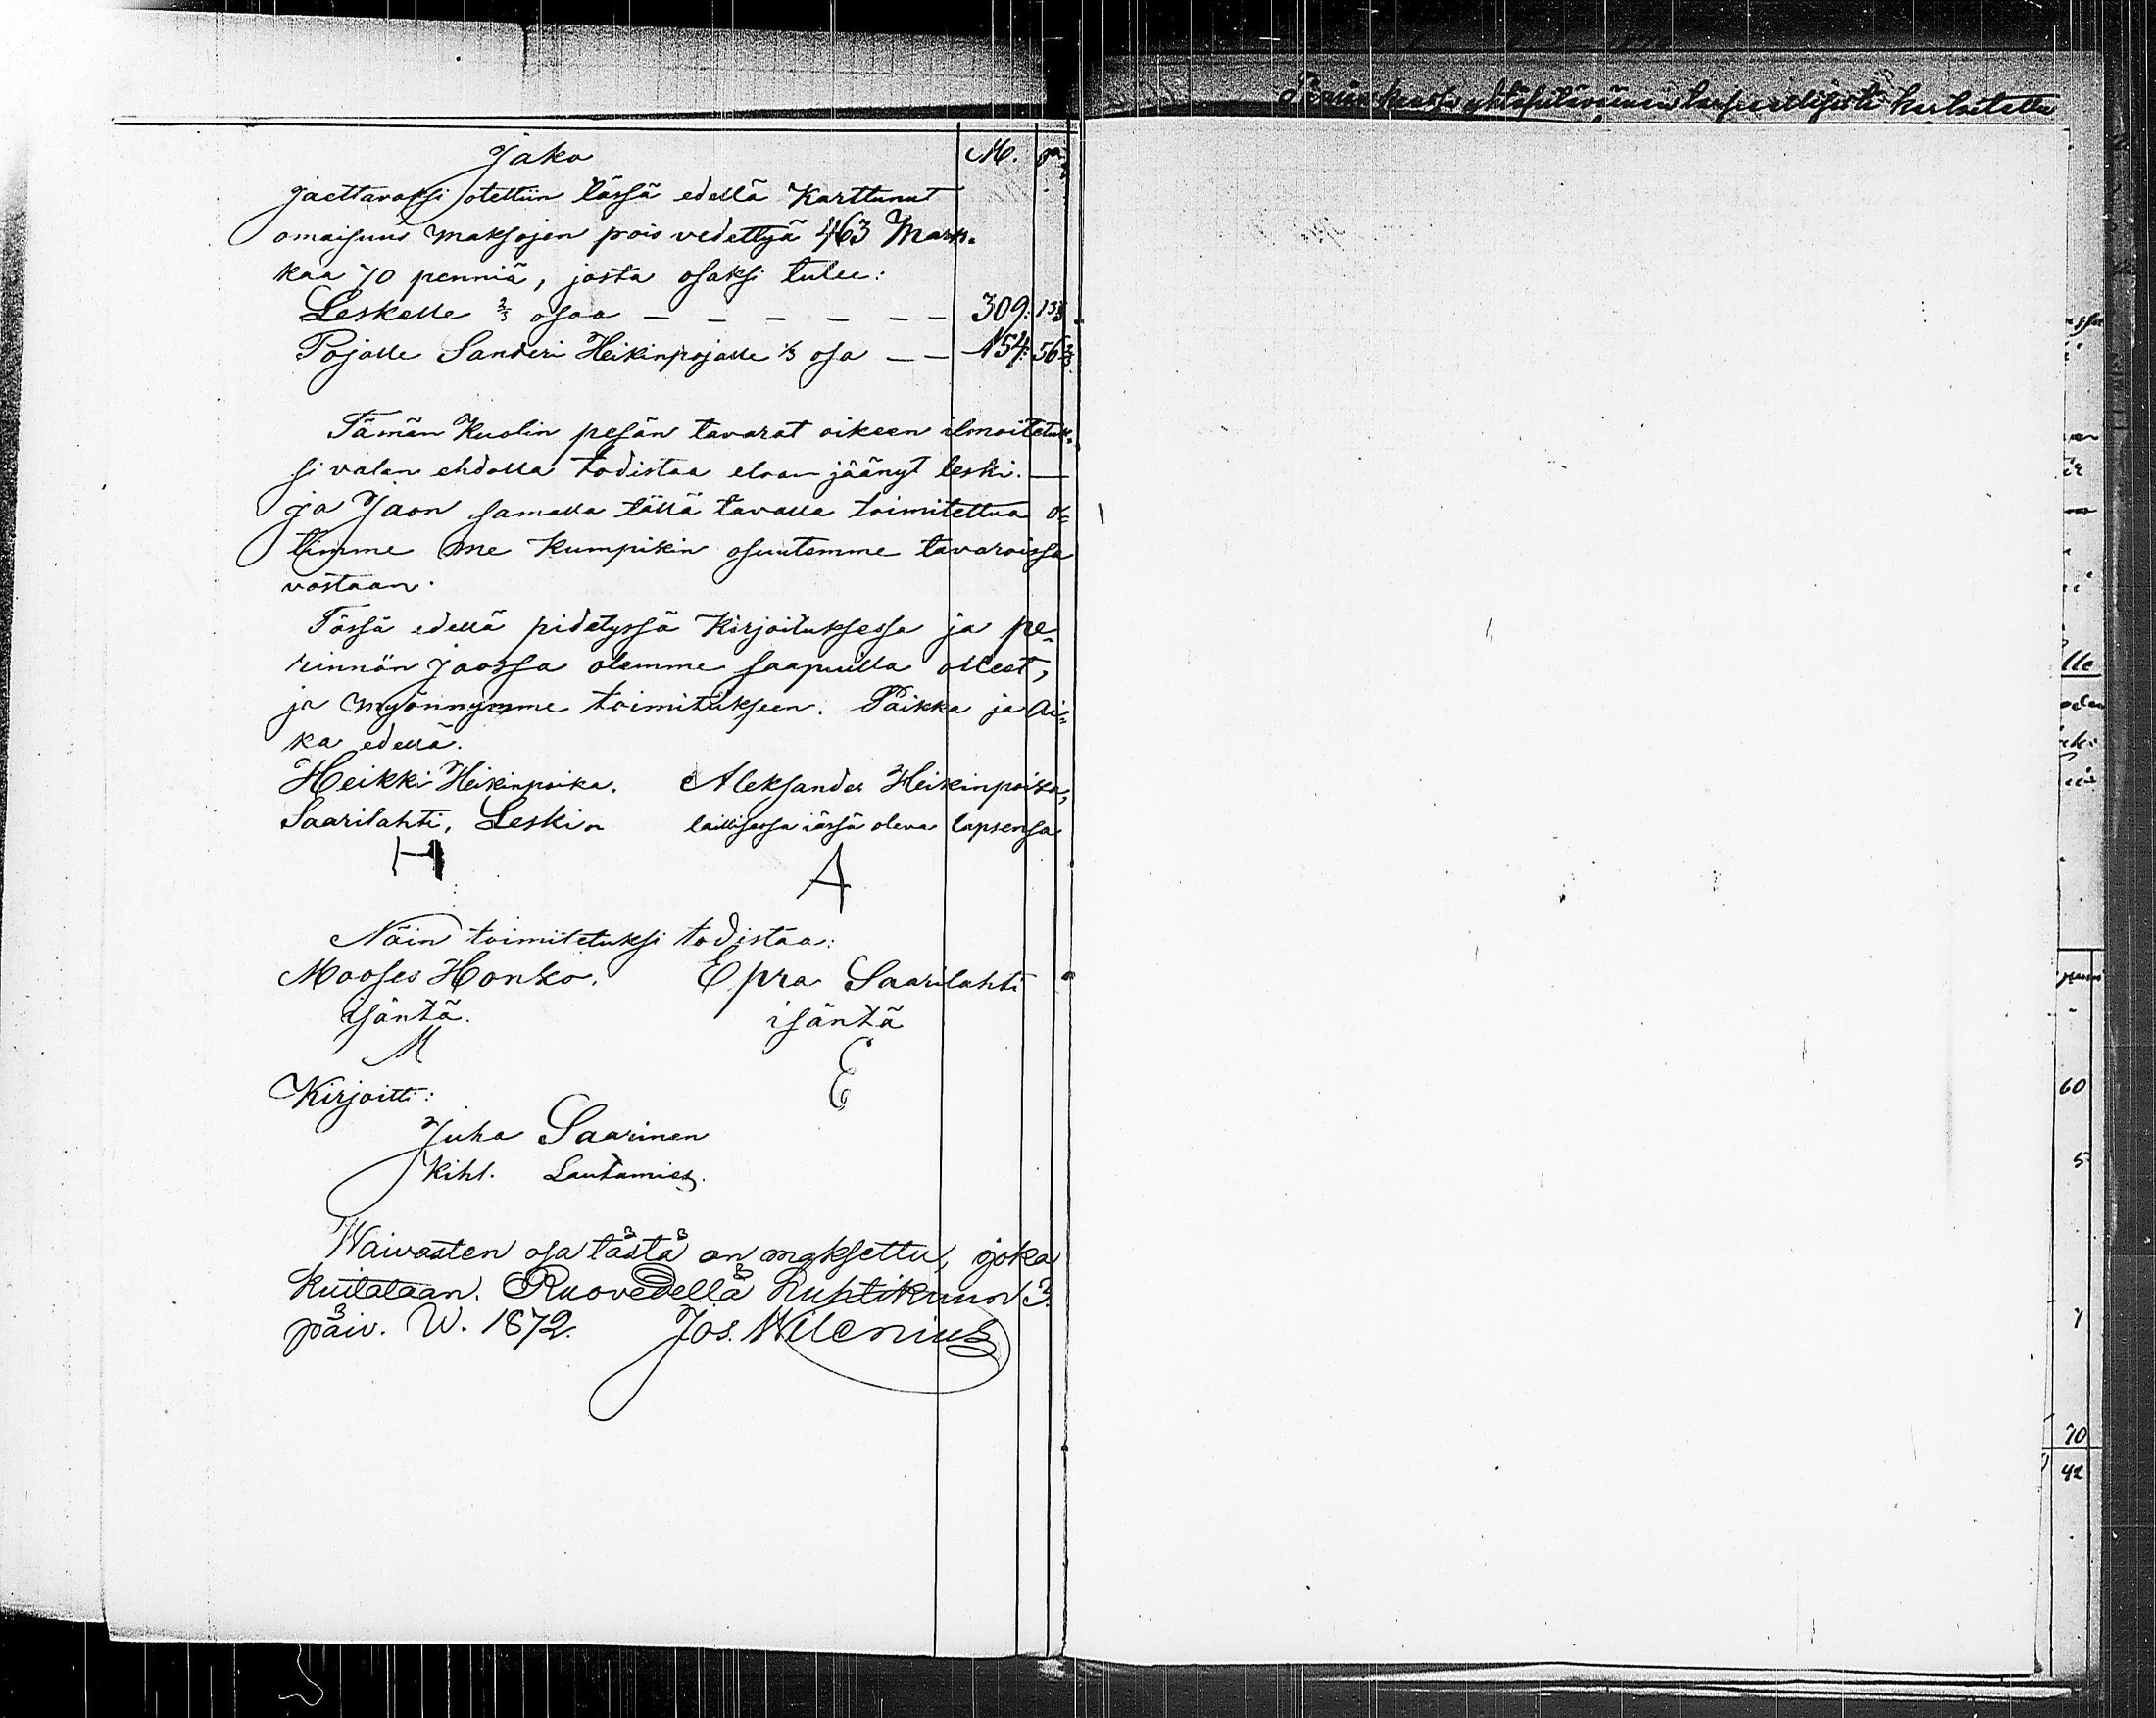 Jako
M. p.
jaettavaksi otettiin tässä edellä Karttunut
omaisuus maksojen pois vedettyä 463 Mark=
kaa 70 penniä, josta osaksi tulee:
Leskelle 2/3 osaa — — — — — — 309: 13 1/3
Pojalle Sanderi Heikinpojalle 1/3 osa — — 154: 56 2/3
Tämän Kuolin pesän tavarat oikeen ilmoitetuk=
si valan ehdolla todistaa eloon jäänyt leski. —
ja Jaon samalla tällä tavalla toimitettua o=
timme me Kumpikin osuutemme tavaroissa
vastaan.
Tässä edellä pidetyssä Kirjoituksessa ja pe=
rinnön jaossa olemme saapuilla olleet,
ja myönnymme toimitukseen. Paikka ja ai=
ka edellä.
Heikki Heikinpoika. Aleksander Heikinpoika,
Saarilahti, Leski. laillisessa iässä oleva lapsensa
H A
Näin toimitetuksi todistaa:
Mooses Honko. Epra Saarilahti
isäntä. isäntä
M E
Kirjoitti:
Juha Saarinen
Kihl. Lautamies.
Waivasten osa tästä on maksettu, joka
kuitataan. Ruovedellä huhtikuun 3.
päiv. W. 1872. Jos. Wilenius
lle
60
5
7
70
42